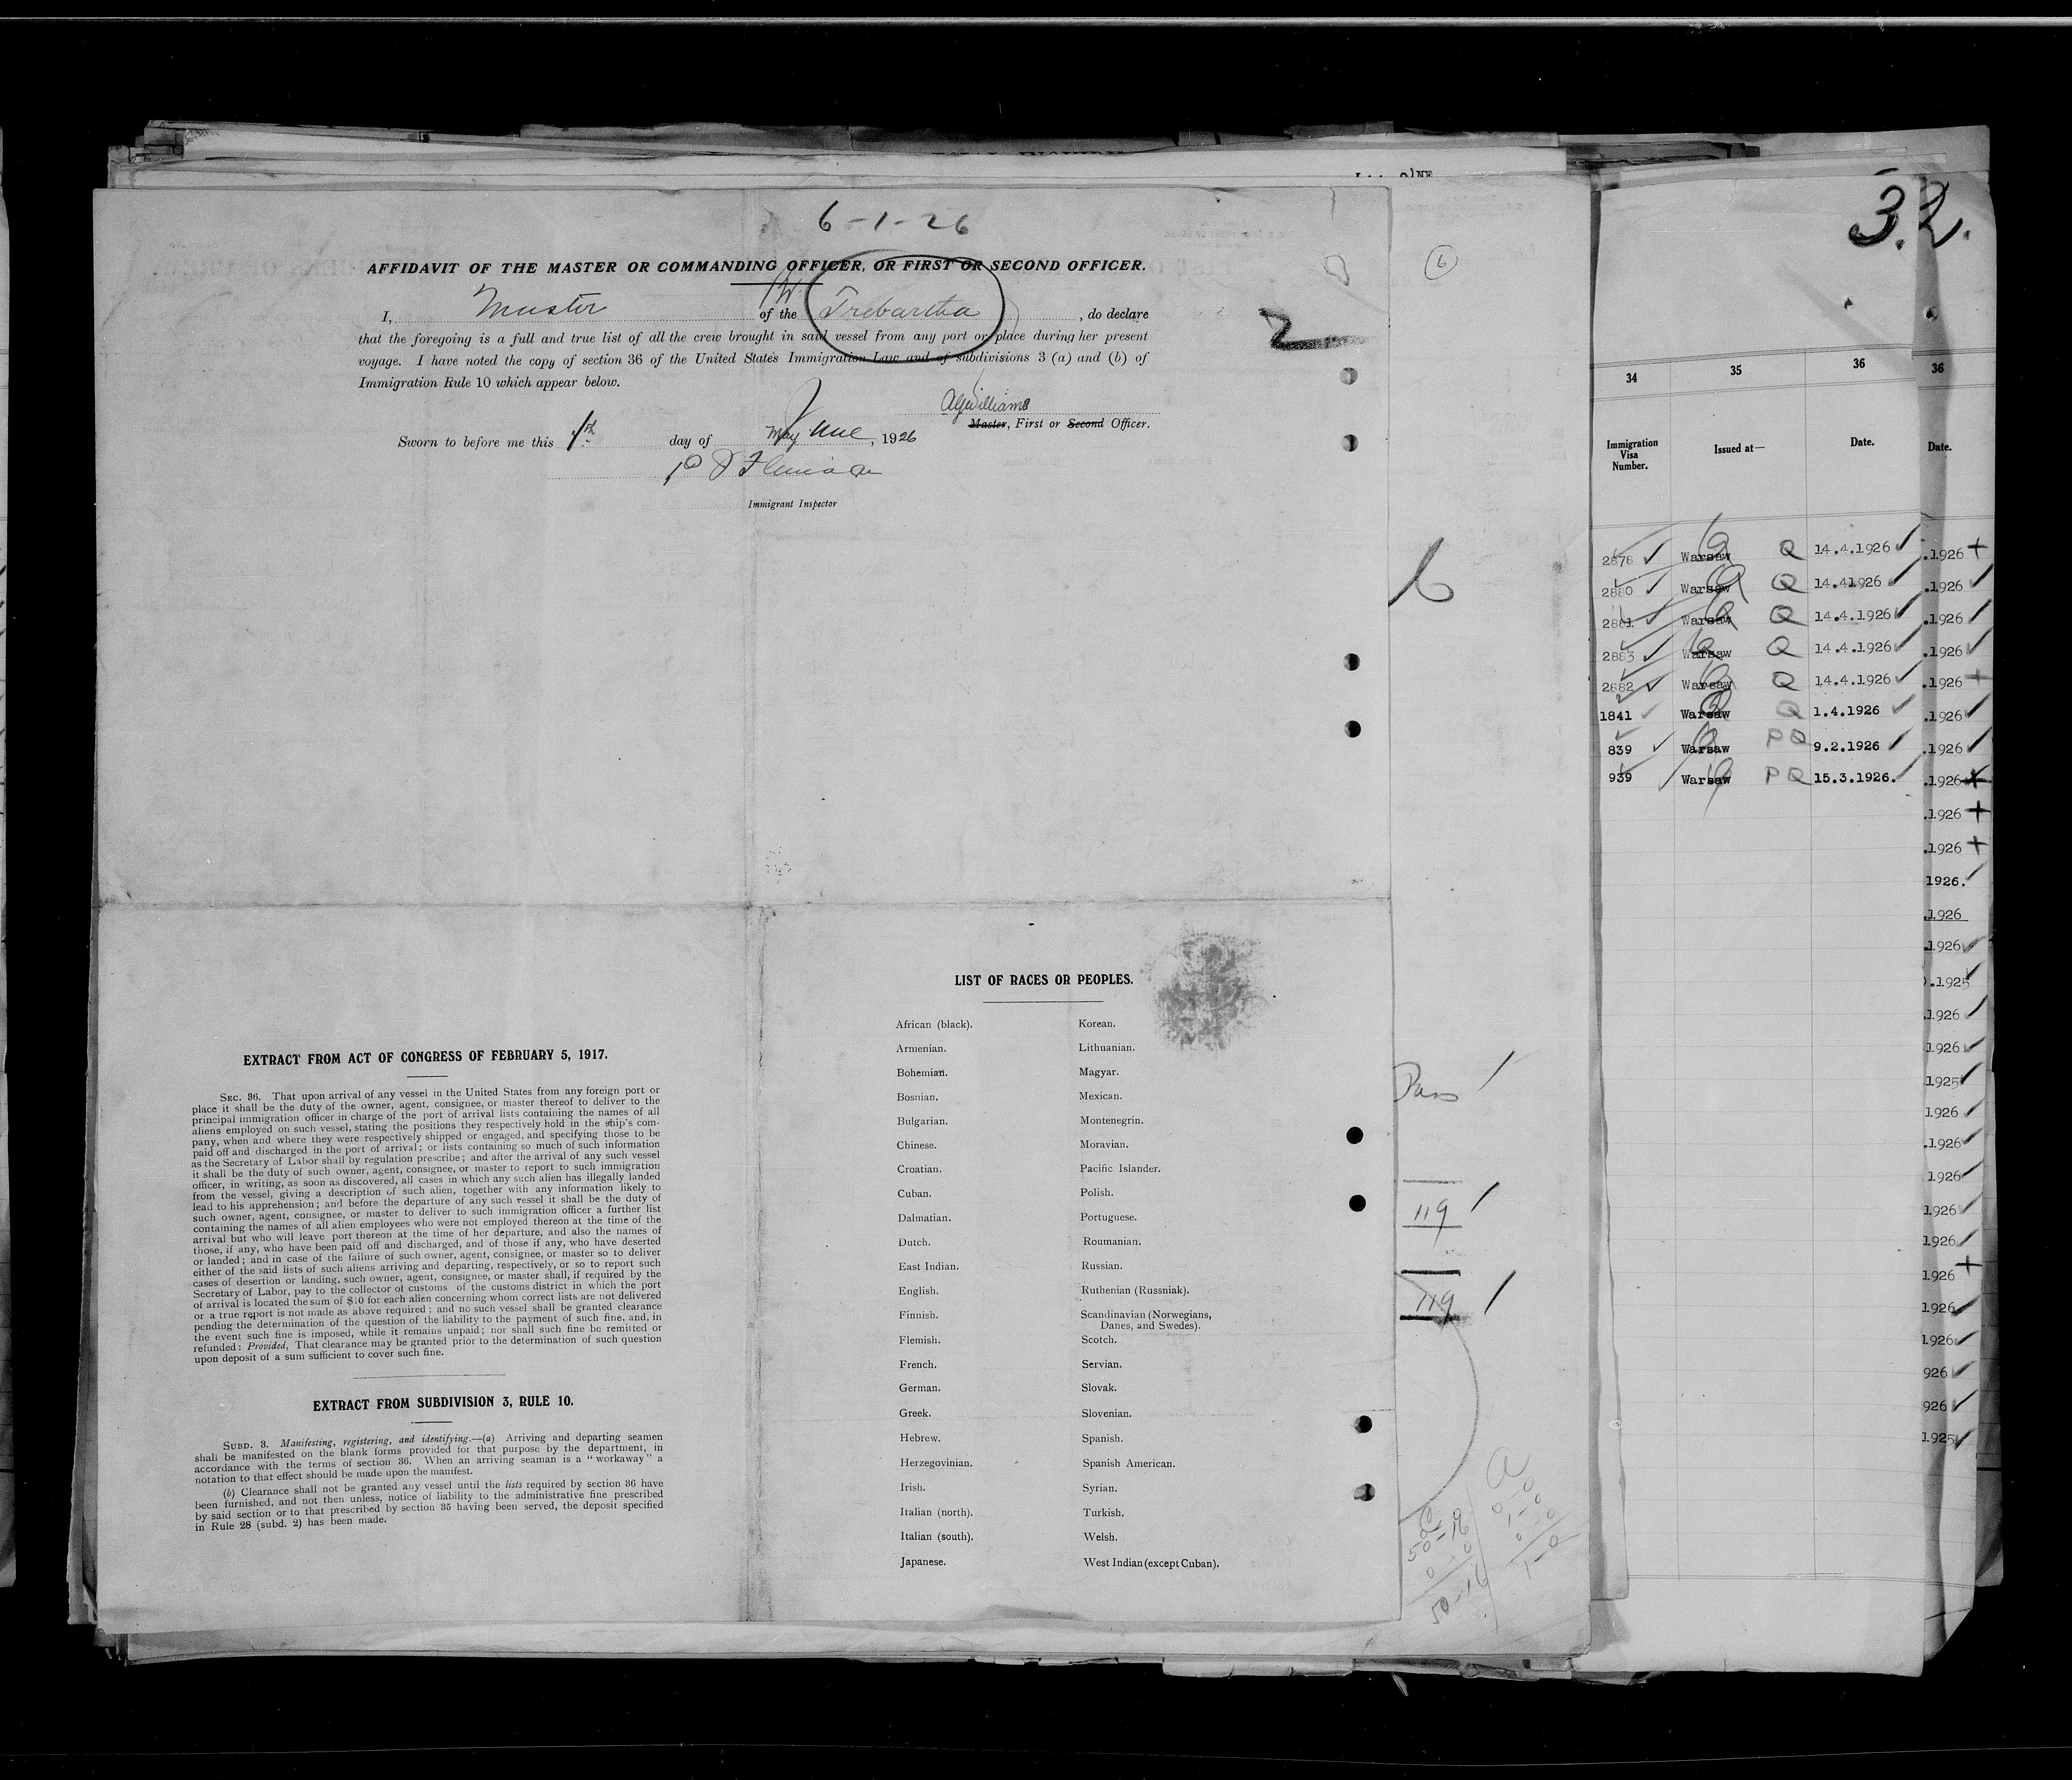 6-1-26
AFFIDAVIT OF THE MASTER OR COMMANDING OFFICER, OR FIRST OR SECOND OFFICER.
I, Master of the Trebartha, do declare
that the foregoing is a full and true list of all the crew brought in said vessel from any port or place during her present
voyage. I have noted the copy of section 36 of the United States Immigration Law and of subdivisions 3 (a) and (b) of
Immigration Rule 10 which appear below.
Master, First or Second Officer.
Sworn to before me this day of May June, 1926
Immigrant Inspector
2
6
6
EXTRACT FROM ACT OF CONGRESS OF FEBRUARY 5, 1917.
SEC. 36. That upon arrival of any vessel in the United States from any foreign port or
place it shall be the duty of the owner, agent, consignee, or master thereof to deliver to the
principal immigration officer in charge of the port of arrival lists containing the names of all
aliens employed on such vessel, stating the positions they respectively hold in the ship's com-
pany, when and where they were respectively shipped or engaged, and specifying those to be
paid off and discharged in the port of arrival; or lists containing so much of such information
as the Secretary of Labor shall by regulation prescribe; and after the arrival of any such vessel
it shall be the duty of such owner, agent, consignee, or master to report to such immigration
officer, in writing, as soon as discovered, all cases in which any such alien has illegally landed
from the vessel, giving a description of such alien, together with any information likely to
lead to his apprehension; and before the departure of any such vessel it shall be the duty of
such owner, agent, consignee, or master to deliver to such immigration officer a further list
containing the names of all alien employees who were not employed thereon at the time of the
arrival but who will leave port thereon at the time of her departure, and also the names of
those, if any, who have been paid off and discharged, and of those if any, who have deserted
or landed; and in case of the failure of such owner, agent, consignee, or master so to deliver
either of the said lists of such aliens arriving and departing, respectively, or so to report such
cases of desertion or landing, such owner, agent, consignee, or master shall, if required by the
Secretary of Labor, pay to the collector of customs of the customs district in which the port
of arrival is located the sum of $10 for each alien concerning whom correct lists are not delivered
or a true report is not made as above required; and no such vessel shall be granted clearance
pending the determination of the question of the liability to the payment of such fine, and, in
the event such fine is imposed, while it remains unpaid; nor shall such fine be remitted or
refunded: Provided, That clearance may be granted prior to the determination of such question
upon deposit of a sum sufficient to cover such fine.
EXTRACT FROM SUBDIVISION 3, RULE 10.
SUBD. 3. Manifesting, registering, and identifying.—(a) Arriving and departing seamen
shall be manifested on the blank forms provided for that purpose by the department, in
accordance with the terms of section 36. When an arriving seaman is a "workaway" a
notation to that effect should be made upon the manifest.
(b) Clearance shall not be granted any vessel until the lists required by section 36 have
been furnished, and not then unless, notice of liability to the administrative fine prescribed
by said section or to that prescribed by section 35 having been served, the deposit specified
in Rule 28 (subd. 2) has been made.
LIST OF RACES OR PEOPLES.
African (black).
Armenian.
Bohemian.
Bosnian.
Bulgarian.
Chinese.
Croatian.
Cuban.
Dalmatian.
Dutch.
East Indian.
English.
Finnish.
Flemish.
French.
German.
Greek.
Hebrew.
Herzegovinian.
Irish.
Italian (north).
Italian (south).
Japanese.
Korean.
Lithuanian.
Magyar.
Mexican.
Montenegrin.
Moravian.
Pacific Islander.
Polish.
Portuguese.
Roumanian.
Russian.
Ruthenian (Russniak).
Scandinavian (Norwegians,
Danes, and Swedes).
Scotch.
Servian.
Slovak.
Slovenian.
Spanish.
Spanish American.
Syrian.
Turkish.
Welsh.
West Indian (except Cuban).
Pass
119
119
50-16
32.
34 35 36
Immigration Visa Number. Issued at— Date.
2878 Warsaw Q 14.4.1926
2880 Warsaw Q 14.41926
2881 Warsaw Q 14.4.1926
2883 Warsaw Q 14.4.1926
2882 Warsaw Q 14.4.1926
1841 Warsaw Q 1.4.1926
839 Warsaw PQ 9.2.1926
939 Warsaw PQ 15.3.1926.
36
Date.
.1926
.1926
.1926
.1926
.1926
.1926
.1926
.1926
.1926
.1926
1926.
.1926
.1926
.1925
.1926
1926
1925
1926
.1926
1926
1926
1926
1926
1926
1926
926
926
1925